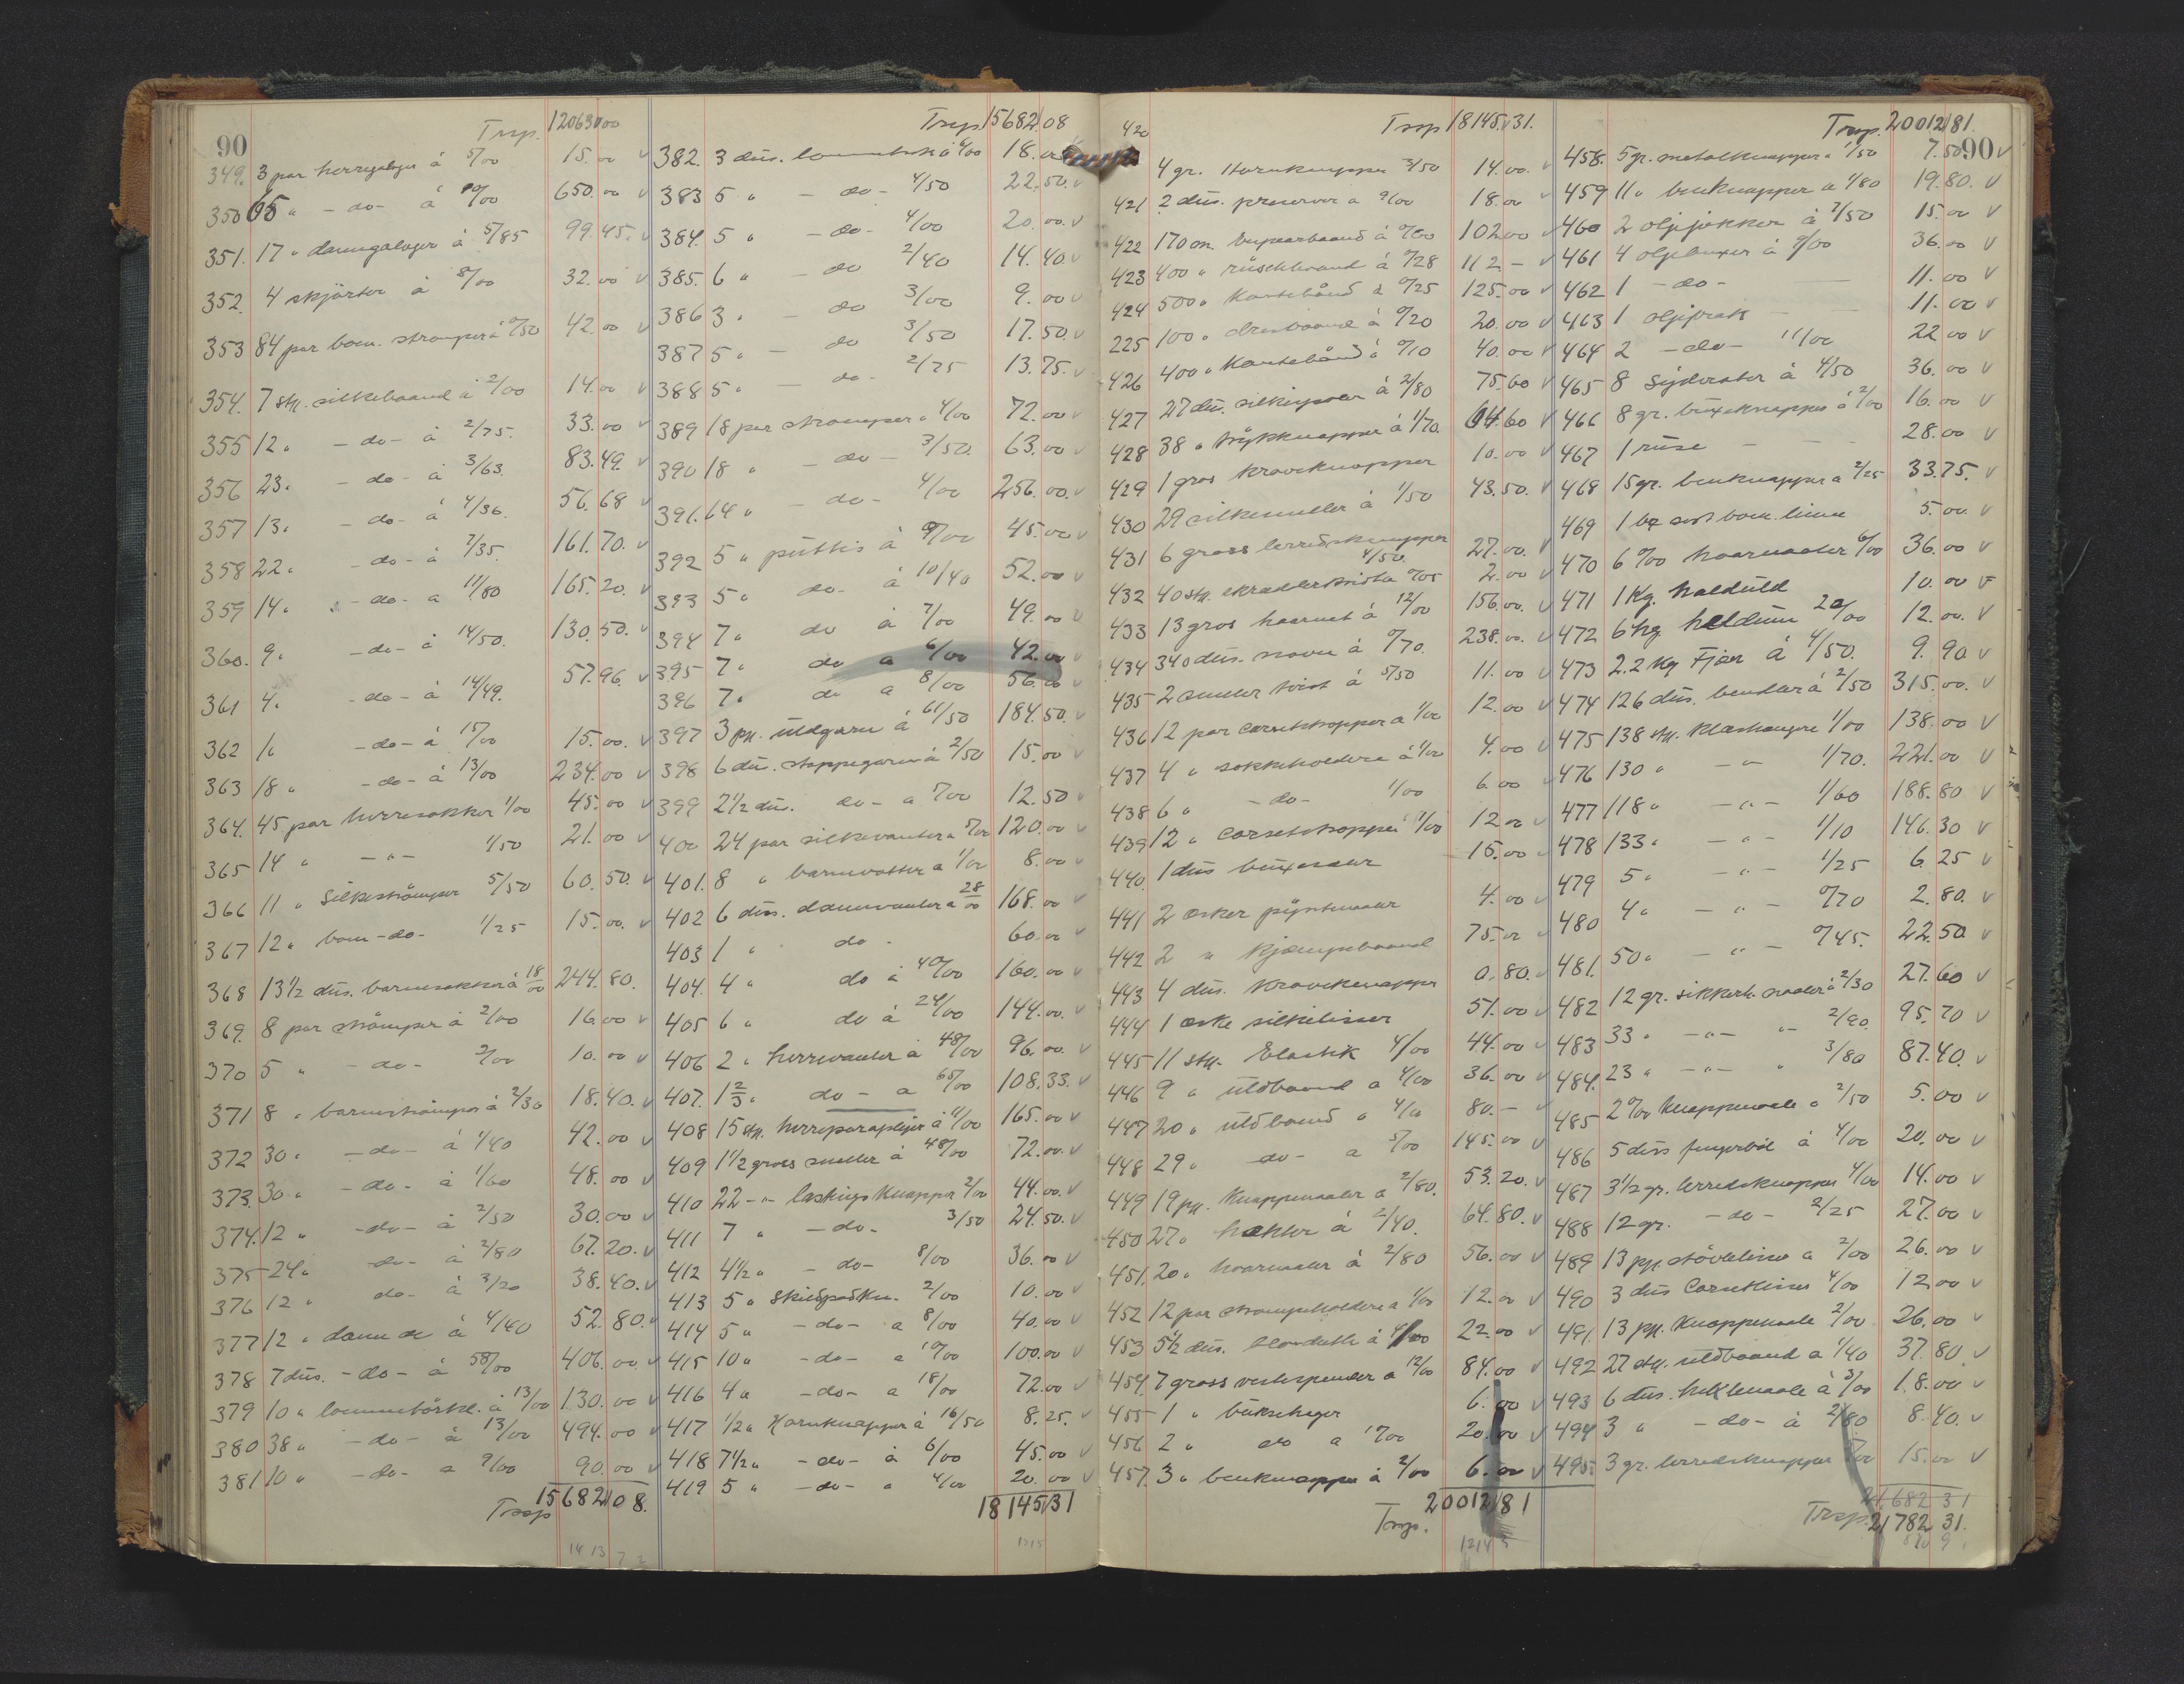 90
Trsp. 12063 00
349. 3 par herregalosjer á 5/00 15.00 v
350 65 " - do - á 10/00 650.00 v
351. 17 " damegalosjer á 5/85 99.45. v
352. 4 skjörter á 8/00 32.00 v
353 84 par bom. strømper á 0/50 42.00 v
354. 7 stk. silkebaand á 2/00 14.00 v
355 12 " - do - á 2/75. 33.00 v
356 23 " - do - á 3/63. 83.49. v
357 13 " - do - á 4/36. 56.68 v
358 22 " - do - á 7/35. 161.70. v
359 14 " - do - a 11/80 165.20. v
360. 9 " - do - á 14/50. 130.50. v
361 4 " - do - á 14/49. 57.96. v
362 1 " - do - á 15/00 15.00. v
363 18 " - do - á 13/00 234.00 v
364. 45 par herresokker 1/00 45.00 v
365 14 " - " - 1/50 21.00 v
366 11 " Silkeströmper 5/50 60.50. v
367 12 " bom - do - 1/25 15.00. v
368 13 1/2 dus. barnesokker á 18/00 244.80.
369. 8 par strömper á 2/00 16.00 v
370 5 " - do - 2/00 10.00 v
371 8 " barneströmper á 2/30 18.40. v
372 30 " - do - á 1/40 42.00 v
373. 30 " - do - á 1/60 48.00 v
374. 12 " - do - á 2/50 30.00 v
375 24 " do - á 2/80 67.20. v
376 12 " do - á 3/20 38.40. v
377 12 " dame do á 4/40 52.80. v
378 7 dus. - do - á 58/00 406.00. v
379 10 " lommetörkl. á 13/00 130.00 v
380 38 " - do - á 13/00 494.00 v
381 10 " - do - a 9/00 90.00 v
Trsp 15682 08.
14 13 7 2
Trsp. 15682 08
382. 3 dus. lommetörk á 6/00 18.00
383 5 " - do - 4/50 22.50. v
384. 5 " - do - 4/00 20.00. v
385. 6 " - do 2/40 14.40 v
386 3 " - do 3/00 9.00 v
387 5 " - do 3/50 17.50. v
388 5 " - do - 2/75 13.75. v
389 18 par strömper " 4/00 72.00 v
390 18 " - do - 3/50. 63.00 v
391. 64 " - do - 4/00 256.00. v
392 5 " puttis á 9/00 45.00 v
393 5 " do - á 10/40 52.00 v
394 7 " do á 7/00 49.00 v
395 7 " do a 6/00 42.00
396 7 " do a 8/00 56.00 v
397 3 pk. uldgarn á 61/50 184.50. v
398 6 dus. stoppegarn á 2/50 15.00 v
399 2 1/2 dus. do - a 5/00 12.50 v
400 24 par silkevanter a 5/00 120.00 v
401. 8 " barnevotter a 1/00 8.00 v
402 6 dus. damevanter á 28/00 168.00 v
403 1 " do - 60.00 v
404. 4 " do á 40/00 160.00 v
405 6 " do á 24/00 144.00. v
406 2 " herrevanter á 48/00 96.00. v
407. 1 2/3 " do - a 65/00 108.33. v
408 15 stk. herreparaplyer á 11/00 165.00 v
409 1 1/2 gross sneller á 48/00 72.00. v
410 22 - " - lastings Knapper 2/00 44.00. v
411 7 " - do - 3/50 24.50. v
412 4 1/2 " - do - 8/00 36.00 v
413 5 " Skildpadkn. 2/00 10.00 v
414 5 " - do - a 8/00 40.00 v
415 10 " - do - a 10/00 100.00 v
416 4 " - do - a 18/00 72.00 v
417 1/2 " Hornknapper á 16/50 8.25. v
418 7 1/2 " - do - á 6/00 45.00 v
419 5 " - do - a 4/00 20.00 v
18145 31
1315
Trsp 18145. 31.
420 4 gr. Hornknapper 3/50 14.00. v
421 2 dus. preserver a 9/00 18.00 v
422 170 m. baand á 0/60 102.00 v
423 400 " rüschbaand á 0/28 112 - v
424 500 " Kantebånd á 0/25 125.00 v
225 100 " dressbaand á 0/20 20.00 v
426 400 " Kantebånd á 0/10 40.00 v
427 27 dus. á 2/80 75.60 v
428 38 " trykknapper á 1/70. 64.60 v
429 1 gros kraveknapper 10.00 v
430 29 silkesneller á 1/50 43.50. v
431 6 gross lerredsknapper 4/50. 27.00. v
432 40 stk. skrædderkridt a 0/05 2.00 v
433 13 gros haarnet á 12/00 156.00. v
434 340 dus. á 0/70. 238.00. v
435 2 sneller tvist á 5/50 11.00 v
436 12 par corsetstropper a 1/00 12.00 v
437 4 " sokkeholdere á 1/00 4.00 v
438 6 " - do - 1/00 6.00
439 12 " corsetstropper 1/00 12.00 v
440. 1 dus 15.00 v
441 2 æsker pyntenaaler 4.00 v
442 2 " Kjæmpebaand 75.00 v
443 4 dus. Kraveknapper 0.80. v
444 1 æske silkelisser 51.00 v
445 11 stk. Elastik 4/00 44.00 v
446 9 " uldbaand a 4/00 36.00 v
447 20 " uldbaand a 4/00 80.- v
448 29 " do - a 5/00 145.00 v
449 19 pk. Knappenaaler a 2/80. 53.20. v
450 27 " hækter á 2/40. 64.80. v
451. 20 " haarnaaler á 2/80 56.00 v
452 12 par strømpeholdere a 1/00 12.00 v
453 5 1/2 dus. á 4/00 22.00 v
454. 7 gross vestespender a 12/00 84.00 v
455 1 " 6.00 v
456 2 " do a 10/00 20.00 v
457. 3 " benknapper á 2/00 6.00 v
Trsp. 20012 81
1214 5
Trsp. 20012 81.
90
458. 5 gr. metalknapper a 1/50 7.50 v
459 11 " benknapper a 1/80 19.80. v
460 2 oljejakker á 7/50 15.00 v
461 4 oljebuxer á 9/00 36.00 v
462 1 - do - 11.00 v
463 1 oljefrak 11.00 v
464 2 - do - 11/00 22.00 v
465 8 Sydvester á 4/50 36.00 v
466 8 gr. buxeknapper á 2/00 16.00 v
467 1 ruse - - - 28.00 v
468 15 gr. benknapper a 2/25 33.75. v
469 1 sort bom. line 5.00. v
470 6 0/00 haarnaaler 6/00 36.00 v
471 1 Kg. 10.00 v
472 6 hg 20/00 12.00. v
473 2.2 Kg Fjær á 4/50. 9.90 v
474 126 dus. bendler á 2/50 315.00. v
475 138 stk. Klæshengere 1/00 138.00 v
476 130 " - " - 1/70. 221.00 v
477 118 " - " - 1/60 188.80 v
478 133 " - " - 1/10 146.30 v
479 5 " - " - 1/25 6.25 v
480 4 " - " - 0/70 2.80. v
481. 50 " - " - 0/45. 22.50 v
482 12 gr. sikkerh. naaler á 2/30 27.60 v
483 33 " - " - " - 2/90. 95.70 v
484. 23 " - " - " 3/80 87.40. v
485 2 0/00 Knappenaale a 2/50 5.00 v
486 5 dus fingerböl á 4/00 20.00 v
487 3 1/2 gr. lerredsknapper 4/00 14.00 v
488 12 gr. - do - 2/25 27.00 v
489 13 pk. støvlelisser a 2/00 26.00 v
490 3 dus Corsetlisser 4/00 12.00 v
491. 13 pk. Knappenaale 2/00 26.00 v
492 27 stk. uldbaand a 1/40 37.80 v
493 6 dus. heklenaale á 3/00 18.00 v
494 3 " - do - á 2/80. 8.40. v
495. 3 gr. lerredsknapper 5/00 15.00 v
21.682 31
Trsp. 21782 31.